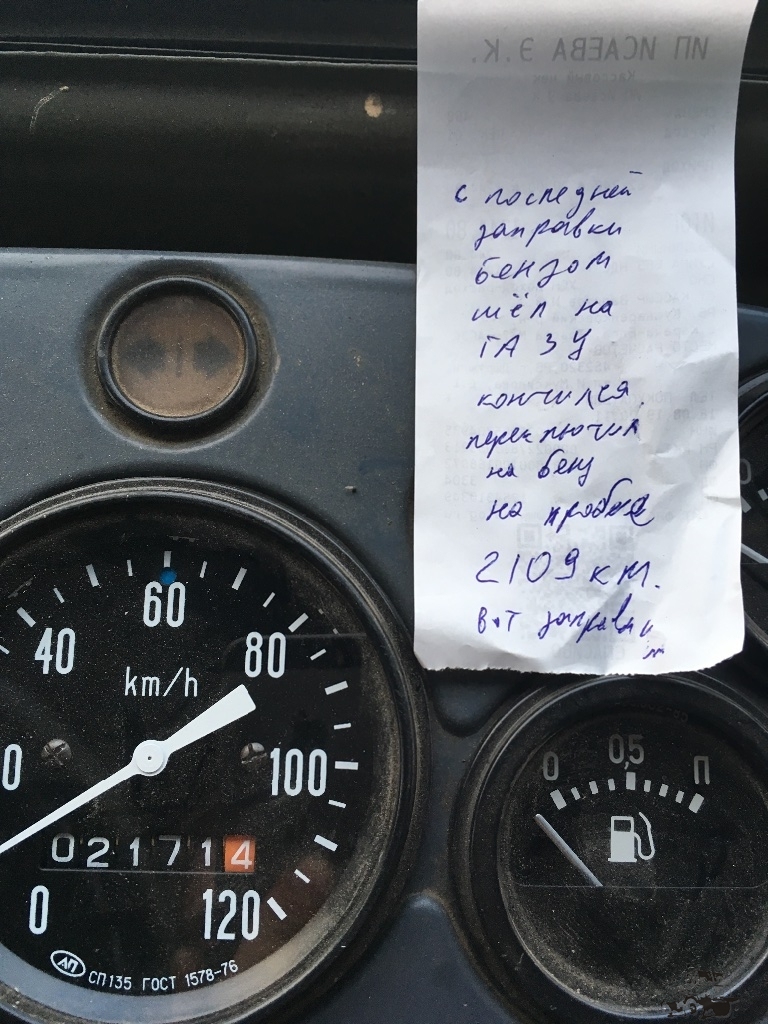 ИП ИСАЕВА Э.К.
с последней
заправки
бензом
шёл на
ГАЗУ
кончился.
переключил
на бенз
на пробеге
2109 км.
вот заправки
60
40
80
km/h
0
100
021714
0
120
АП СП135 ГОСТ 1578-76
0 0,5 П
0